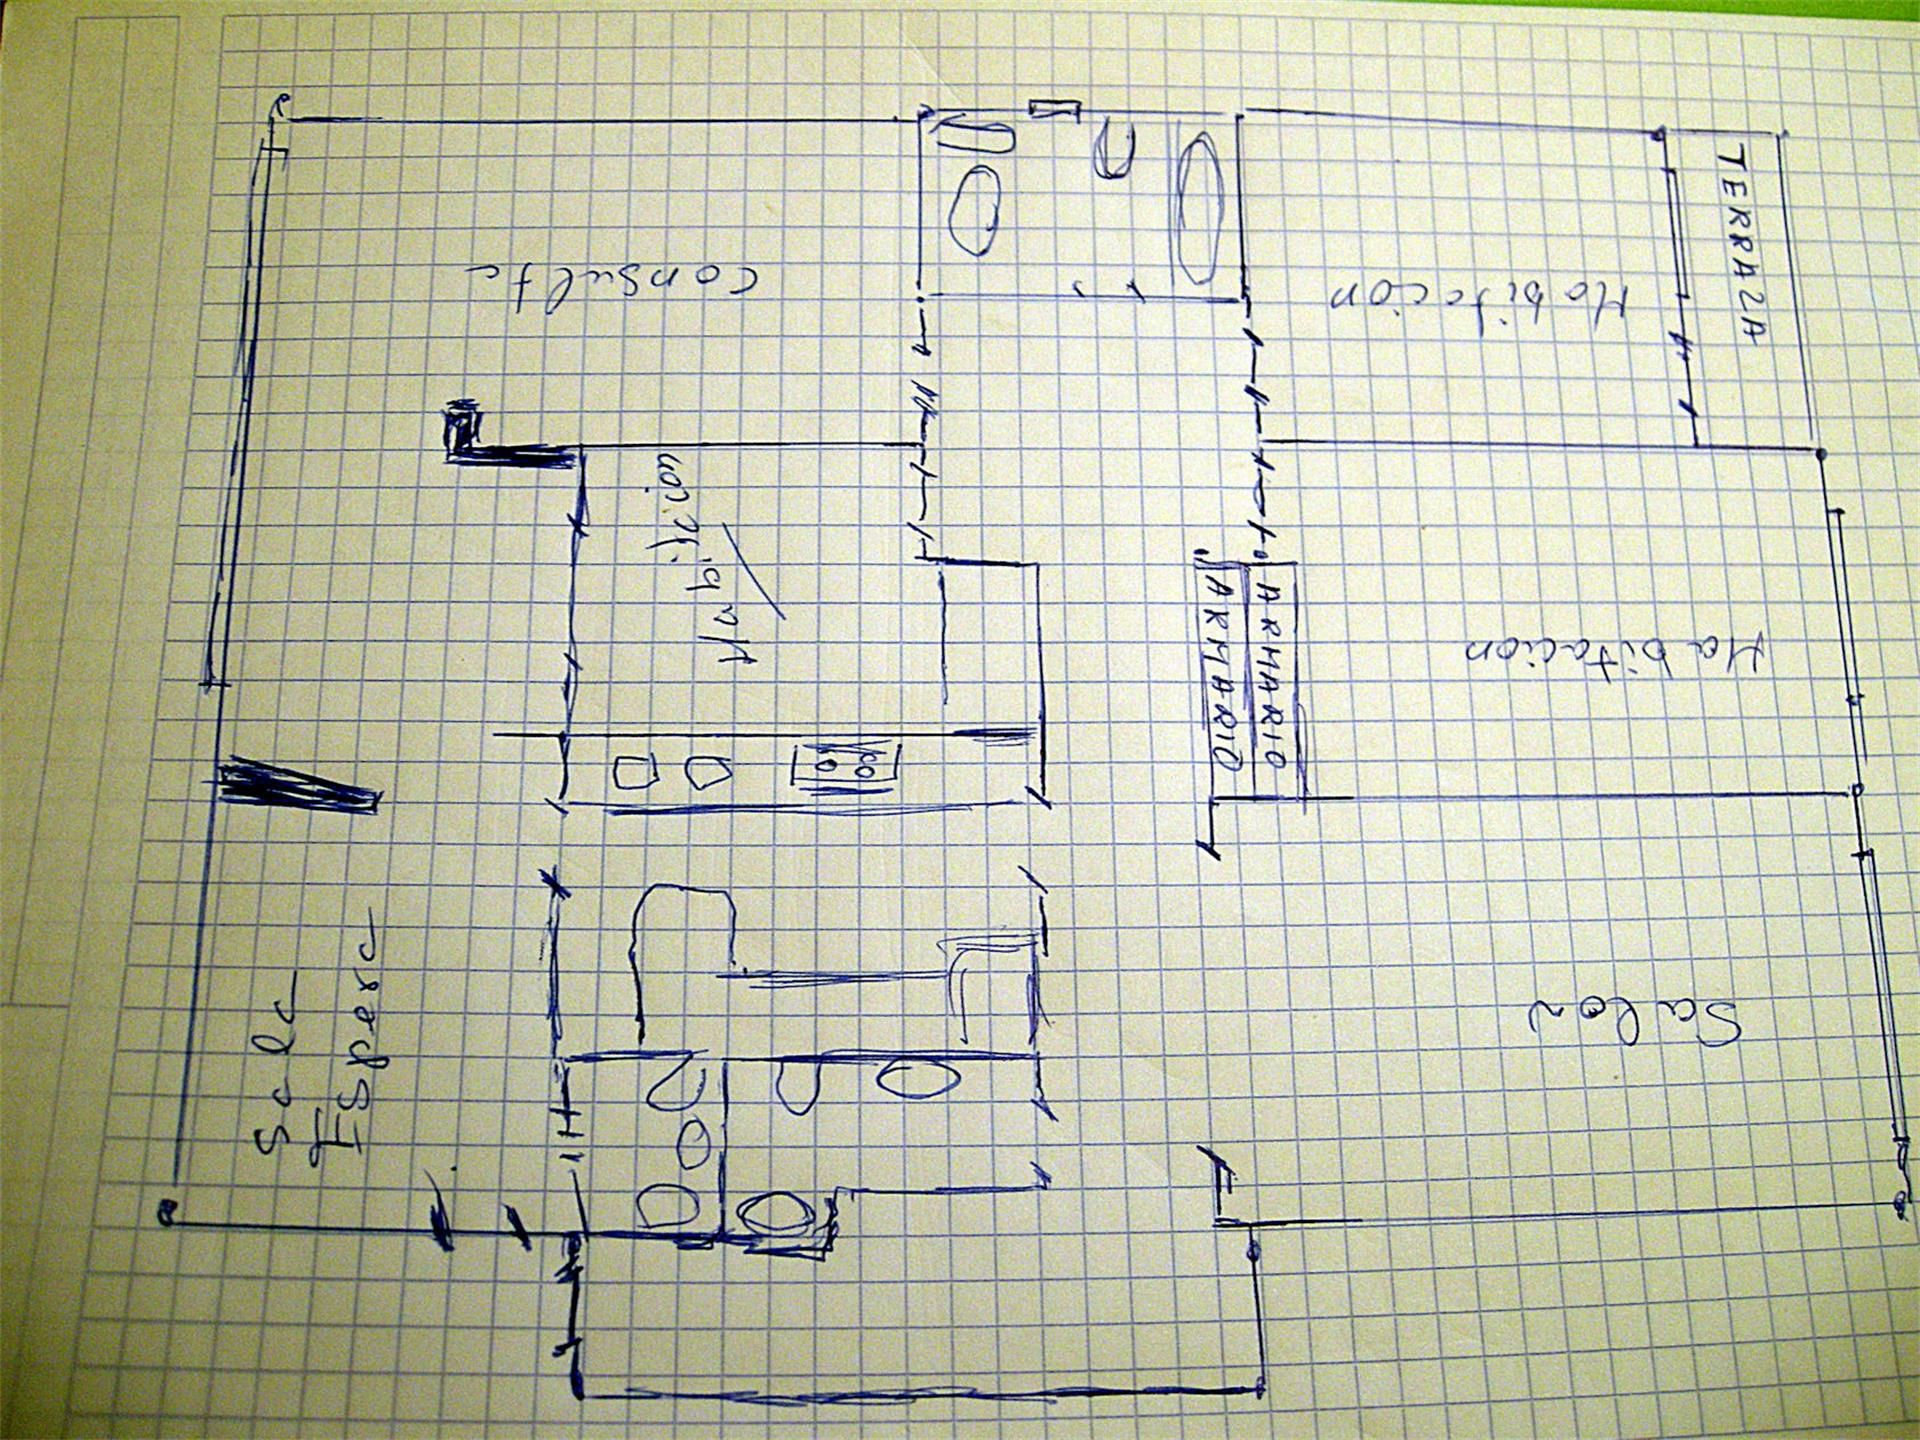 Consulta
Habitacion
TERRAZA
Habitacion
ARMARIO
ARMARIO
Habitacion
Salon
Sala
Espera